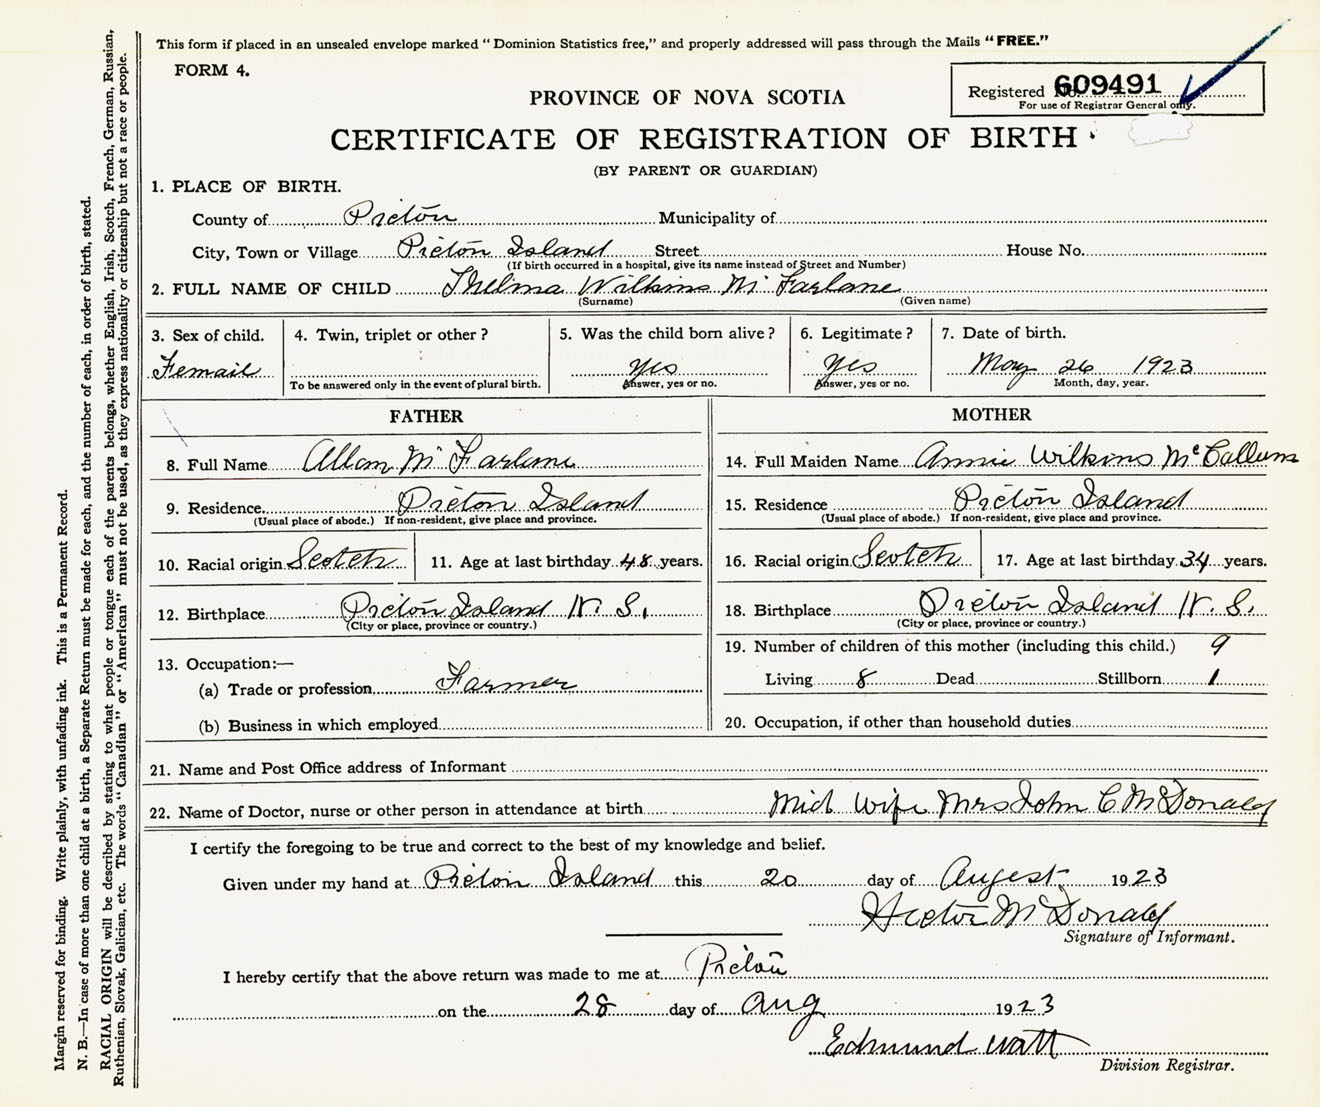 This form if placed in an unsealed envelope marked "Dominion Statistics free," and properly addressed will pass through the Mails "FREE."
FORM 4.
Registered No. 609491
For use of Registrar General only.
PROVINCE OF NOVA SCOTIA
CERTIFICATE OF REGISTRATION OF BIRTH
(BY PARENT OR GUARDIAN)
1. PLACE OF BIRTH.
County of Pictou Municipality of
City, Town or Village Pictou Island Street House No.
(If birth occurred in a hospital, give its name instead of Street and Number)
2. FULL NAME OF CHILD Thelma Wilkins McFarlane
(Surname) (Given name)
3. Sex of child. 4. Twin, triplet or other? 5. Was the child born alive? 6. Legitimate? 7. Date of birth.
Femail Yes Yes May 26 1923
To be answered only in the event of plural birth. Answer, yes or no. Answer, yes or no. Month, day, year.
FATHER
8. Full Name Allan McFarlane
9. Residence. Pictou Island
(Usual place of abode.) If non-resident, give place and province.
10. Racial origin Scotch 11. Age at last birthday 48 years.
12. Birthplace Pictou Island N. S.
(City or place, province or country.)
13. Occupation:—
(a) Trade or profession, Farmer
(b) Business in which employed
MOTHER
14. Full Maiden Name Annie Wilkins McCallum
15. Residence Pictou Island
(Usual place of abode.) If non-resident, give place and province.
16. Racial origin Scotch 17. Age at last birthday 34 years.
18. Birthplace Pictou Island N. S.
(City or place, province or country.)
19. Number of children of this mother (including this child.) 9
Living 8 Dead Stillborn 1
20. Occupation, if other than household duties
21. Name and Post Office address of Informant
22. Name of Doctor, nurse or other person in attendance at birth Mid Wife Mrs John C. McDonald
I certify the foregoing to be true and correct to the best of my knowledge and belief.
Given under my hand at Pictou Island this 20 day of Augest 1923
Hector McDonald
Signature of Informant.
I hereby certify that the above return was made to me at Pictou
on the 28 day of Aug 1923
Edmund Watt
Division Registrar.
Margin reserved for binding. Write plainly, with unfading ink. This is a Permanent Record.
N. B.—In case of more than one child at a birth, a Separate Return must be made for each, and the number of each, in order of birth, stated.
RACIAL ORIGIN will be described by stating to what people or tongue each of the parents belongs, whether English, Irish, Scotch, French, German, Russian,
Ruthenian, Slovak, Galician, etc. The words "Canadian" or "American" must not be used, as they express nationality or citizenship but not a race or people.